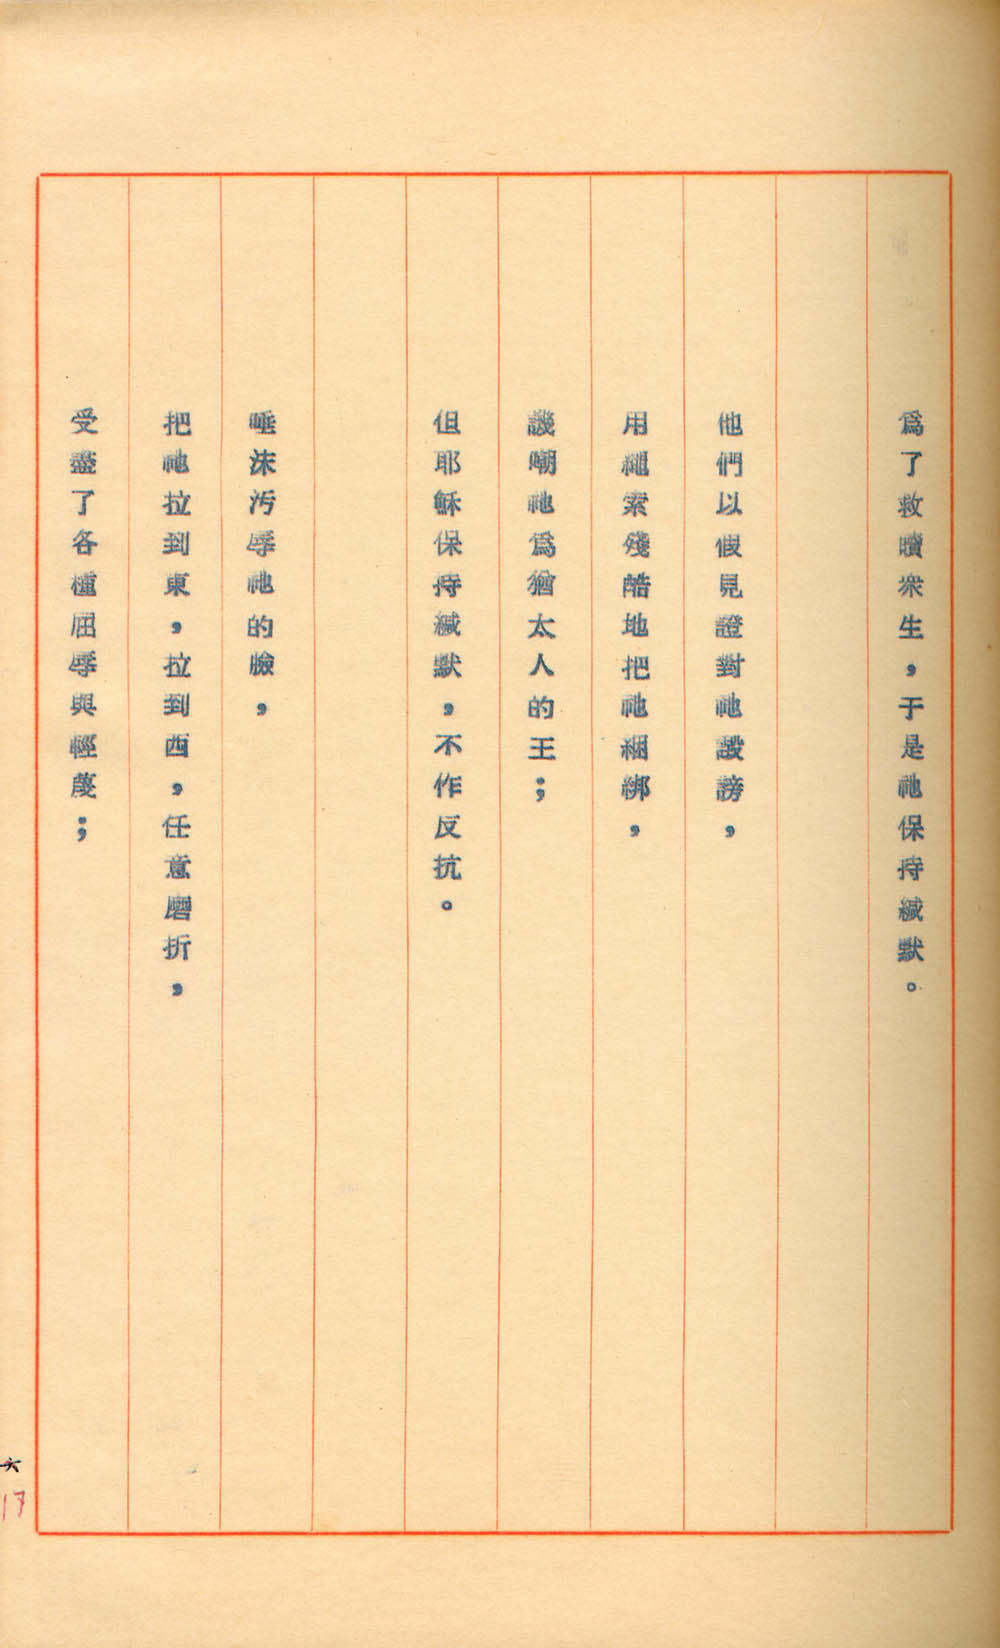 爲了救贖衆生，于是祂保持緘默。
他們以假見證對祂譭謗，
用繩索殘酷地把祂綑綁，
譏嘲祂爲猶太人的王；
但耶穌保持緘默，不作反抗。
唾沫汚辱祂的臉，
把祂拉到東，拉到西，任意磨折，
受盡了各種屈辱與輕蔑；
六
17